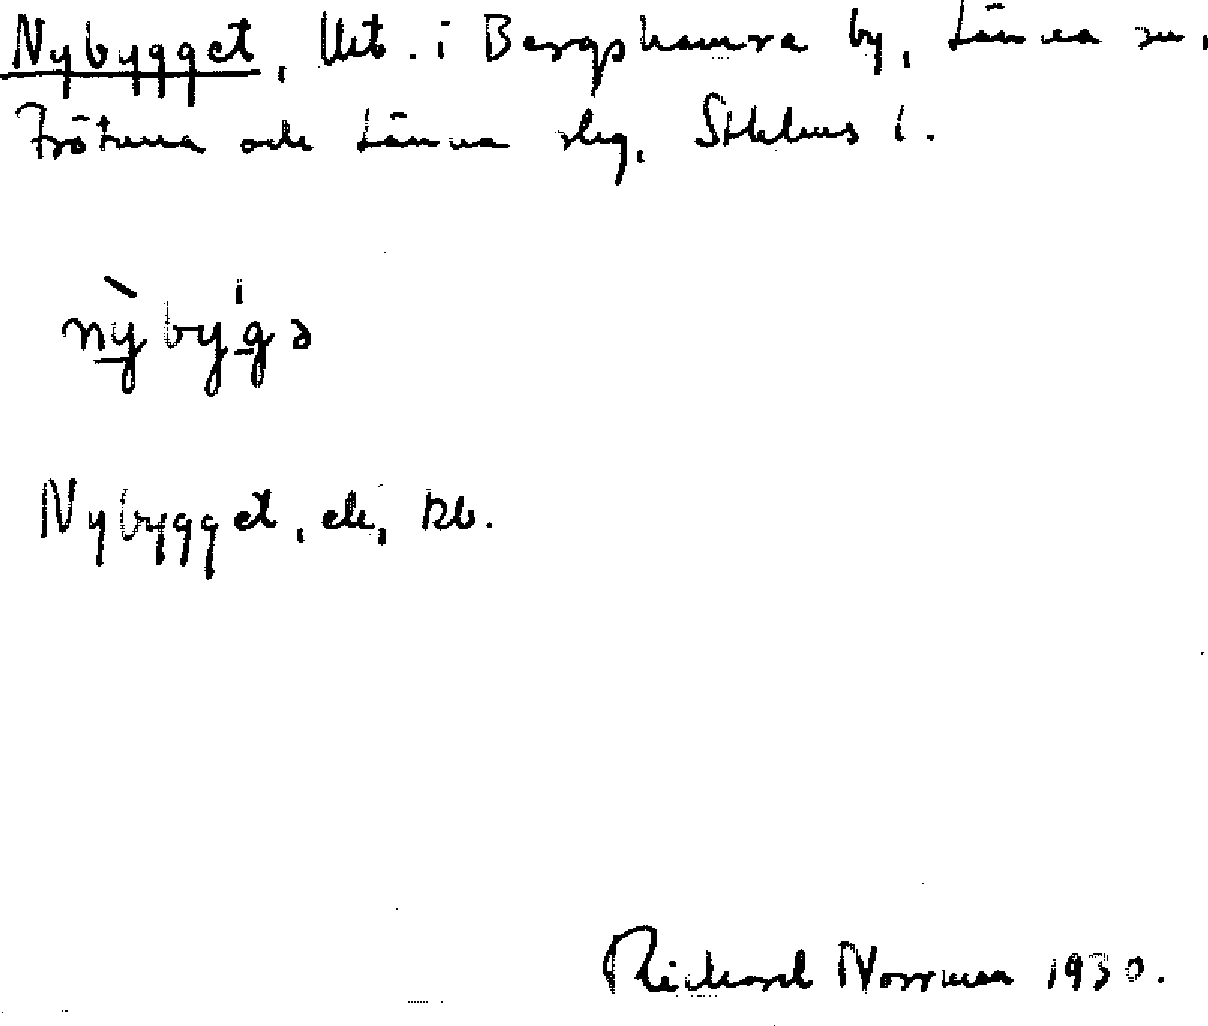 Nybygget, Utb. i Bergshamra by, Länna sn,
Frötuna och Länna slg, Sthlms l.
nỳbýgə
Nybygget, ek, Rb.
Rickard Norrman 1930.